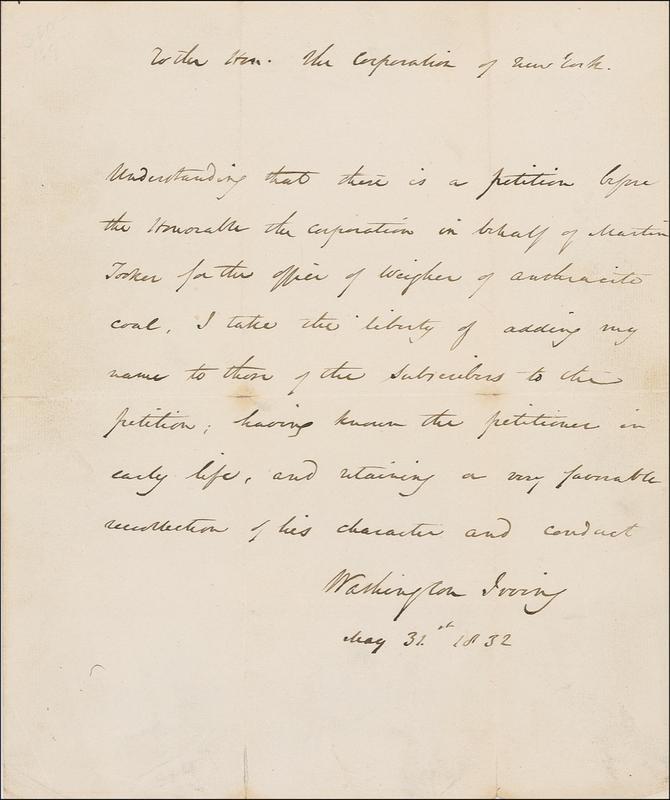 To the Hon. the Corporation of New York.
Understanding that there is a petition before
the Honorable the Corporation in behalf of Martin
Tooker for the office of Weigher of anthracite
coal, I take the liberty of adding my
name to those of the subscribers to the
petition; having known the petitioner in
early life, and retaining a very favorable
recollection of his character and conduct
Washington Irving
May 31st 1832